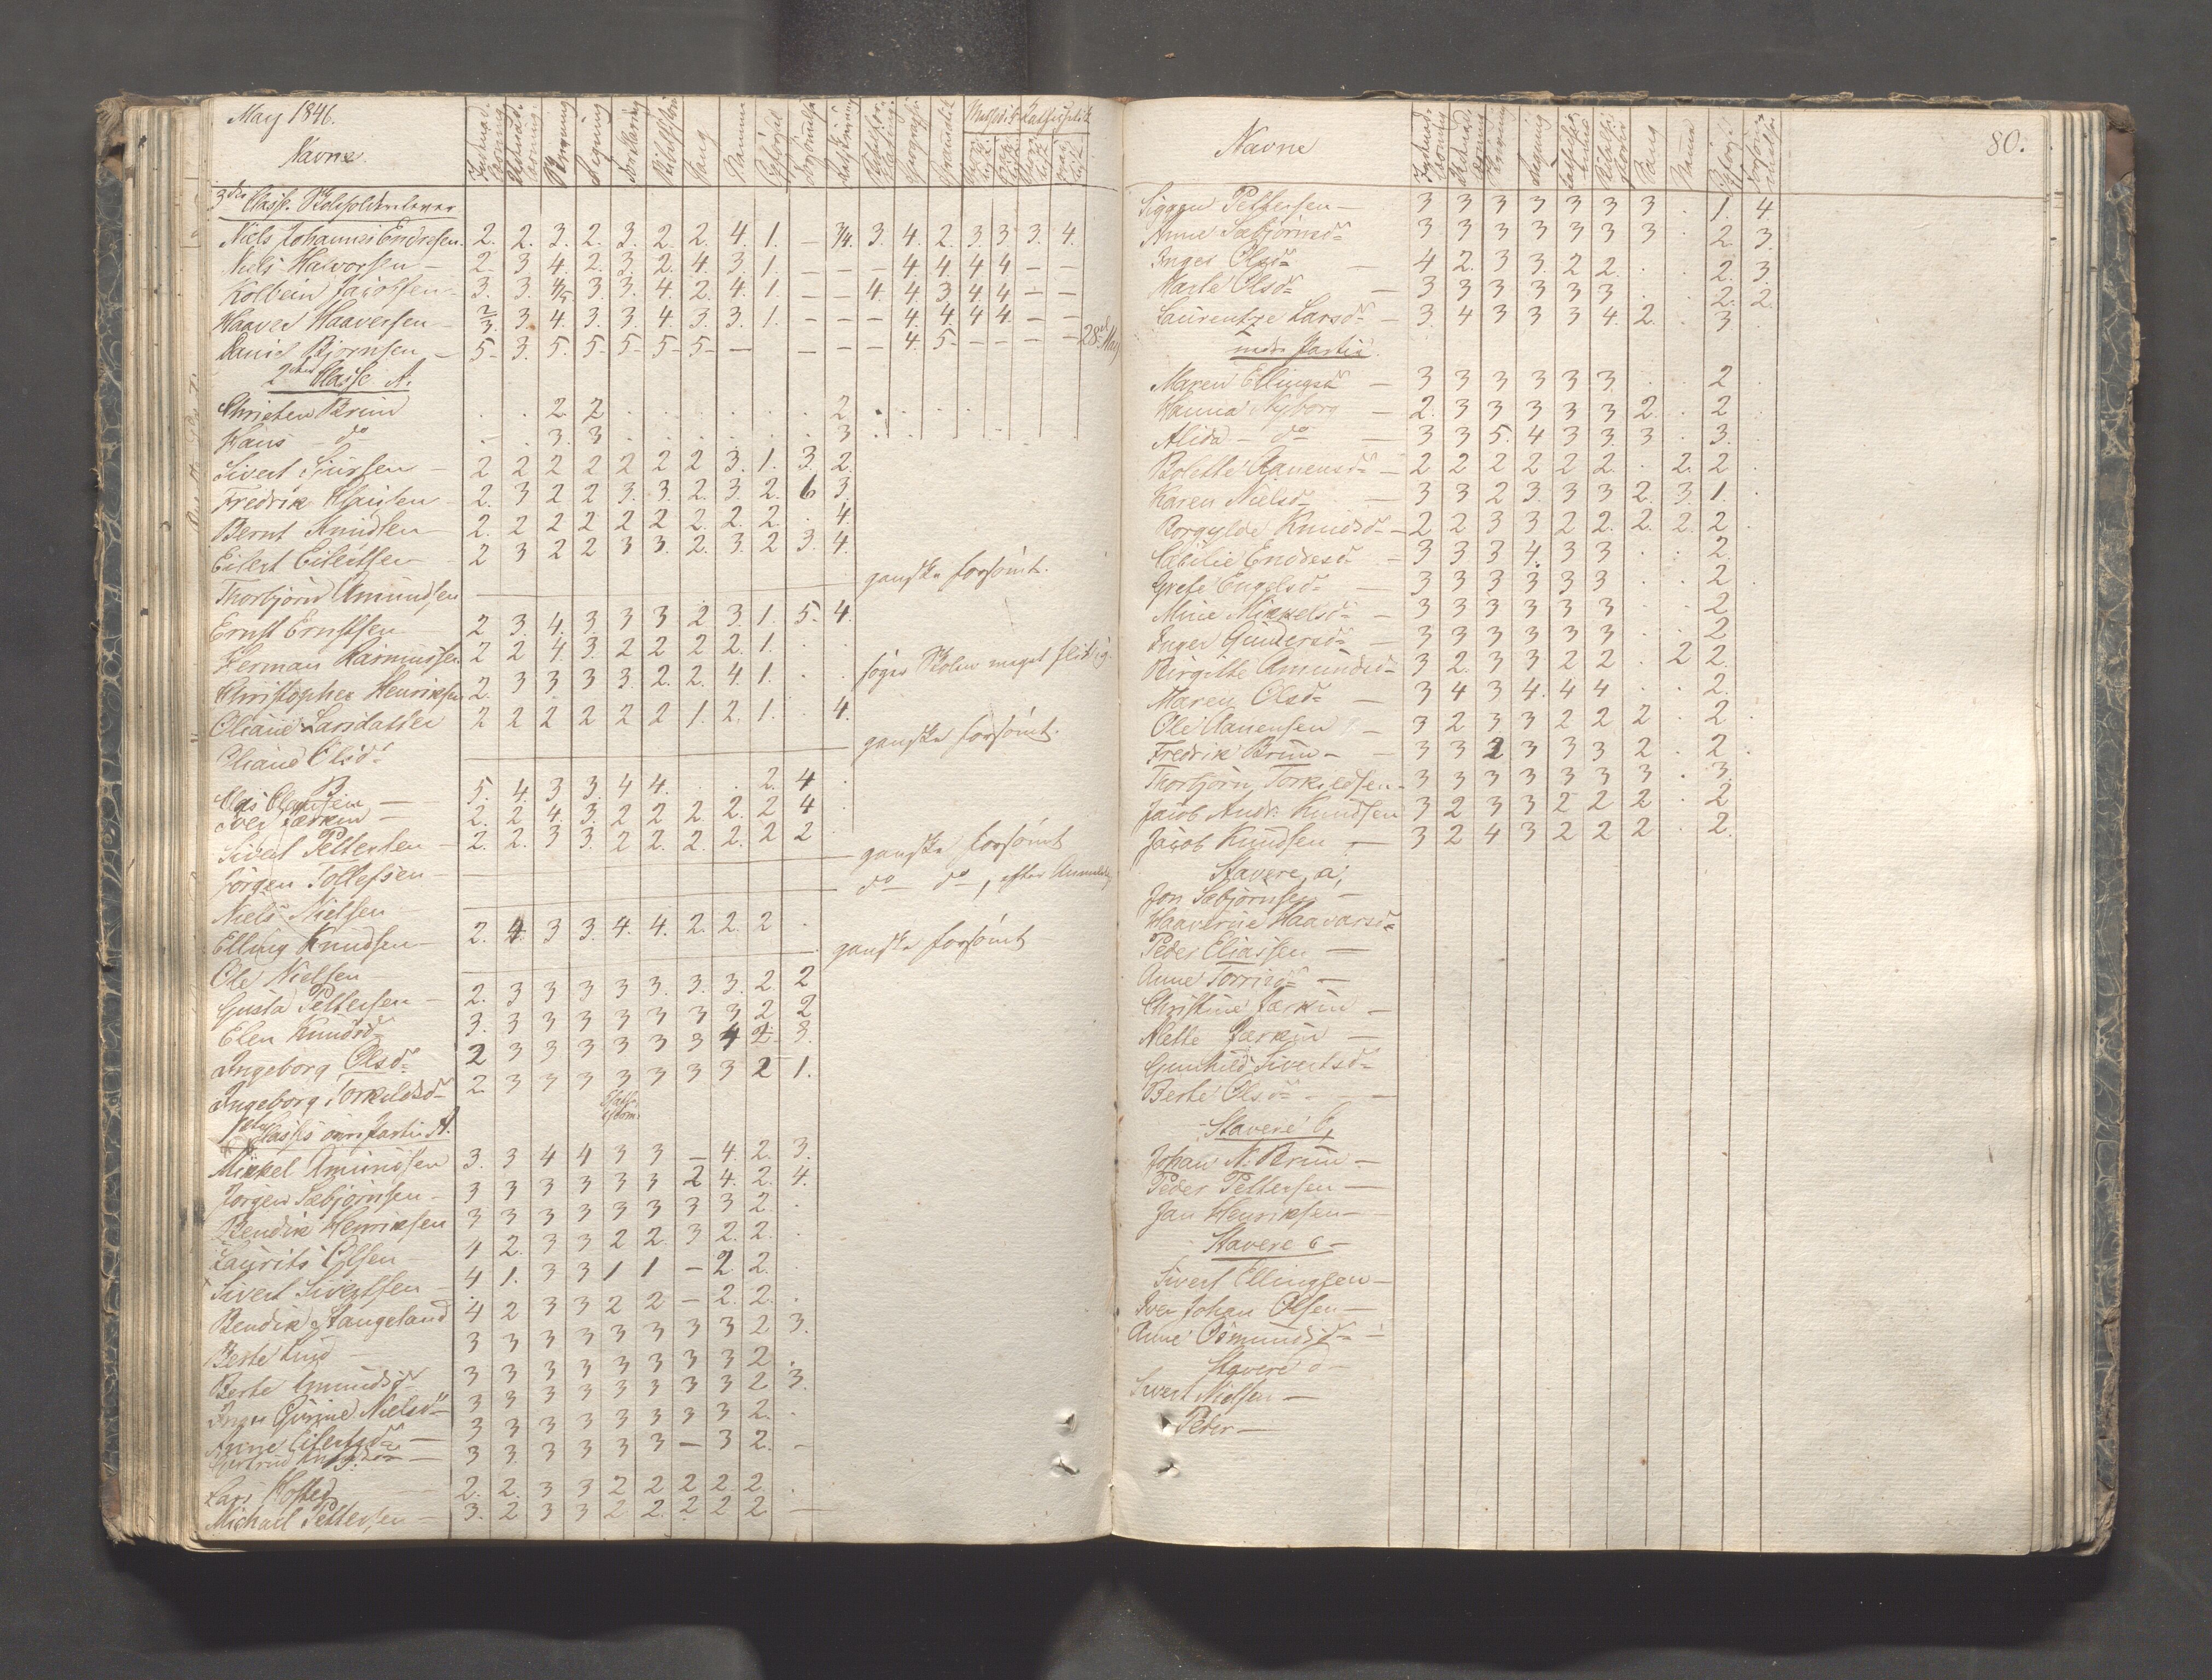 May 1846.
Navne
3die Classe. Skoleholderelever
Niels Johannes Endresen. 2. 2. 3. 2. 3. 2. 2. 4. 1. — 3/4. 3. 4. 2. 3. 3. 3. 4.
Niels Halvorsen — 2. 3 4. 2. 3. 2. 4. 3. 1. — — — 4. 4. 4. 4 — —
Kolbein Jacobsen — 3. 3. 4/5 3. 3. 4. 2. 4. 1. — — 4. 4. 3. 4. 4 — —
Haaver Haaversen — 2/3. 3. 4. 3. 3. 4. 3. 3. 1. — — — 4. 4. 4 4. — —
Daniel Bjørnsen — 5. 3. 5. 5. 5. 5. 5. — — — — 4. 5. — — — — 28de May
2den Classe A.
Christen Brun . . 2. 2 . . . . . . 2
Hans — do . . 3. 3 . . . . . . 3
Sivert Sjursen — 2 2 2 2 2 2 2 3. 1. 3. 2.
Fredrik Clausen — 2. 3 2 2 3. 3. 2. 3. 2. 6 3.
Bernt Knudsen 2. 2 2 2 2 2 2. 2. 2. . 4.
Eilert Eilertsen — 2 3 2 2 3 3. 2. 3. 2 3. 4.
Thorbjørn Amundsen — ganske forsømt.
Ernst Ernstsen 2 3. 4. 3. 3 3 2 3. 1. 5. 4.
Herman Rasmussen 2 2 4. 3. 2 2 2 2. 1. . .
Christopher Henriksen 2. 3 3. 3 3. 2. 2. 4. 1. . . søger Skolen meget flittig.
Oliane Larsdatter 2 2 2 2 2 2 1. 2. 1. . 4.
Oliane Olsd. — ganske forsømt.
B
Claus Clausen — 5. 4. 3 3. 4 4. . . 2. 4 .
Iver Lærkin — 2. 2 4. 3. 2 2 2. 2. 2 4 .
Sivert Pettersen — 2. 2. 3 3. 2 2. 2. 2. 2 2 .
Jörgen Tollefsen — ganske forsømt
Niels Nielsen — do do, efter
Elling Knudsen — 2. 4. 3 3. 4. 4. 2. 2. 2 .
Ole Nielsen — ganske forsømt
Gusta Pettersen — 2. 3 3 3 3 3. 3. 3. 2. 2
Elen Knudsd. 3. 3 3 3 3 3 3 3 2 2
Ingeborg Olsd. 2 3 3 3 3 3 3 4 2. 3.
Ingeborg Torkildsd. 2. 3 3 3 3 3 3 3 2 1.
1ste Classes øvre Partie A.
Mikkel Amundsen 3. 3 4 4 3 3 — 4. 2. 3.
Jorgen Sæbjørnsen — 3 3 3 3 3 3 2 4. 2. 4.
Bendik Henriksen 3 3 3 3 3 3 3 3 2. .
Laurits Olsen — 4 2. 3 3 2 2. 3 2. 2. .
Sivert Sivertsen — 4 1. 3 3 1 1 — 2. 2. .
Bendik Stangeland 4 2 3 3 2 2 — 2. 2. .
Berte Lund — 3 3 3 3 3 3 3 3 2 3.
Berte Amundsd. 3 3 3 3 3 3 3 3 2 .
Inger Gurine Nielsd. — 3 3 3 3 3 3 3 3 2 3.
Anne Eilertsd. — 3 3 3 3 3 3 3 3 2. .
Gjertrud — 3 3. 3 3 3 3 — 3 2. —
Lars — 2. 2. 3 3 2 2 2 2. 2 .
Michael Pettersen — 3. 2 3 3 2 2. 2 2 2 —
Navne
80.
Siggen Pettersen — 3 3 3 3 3 3 3 . 1. 4
Anne Sæbjörnsd. 3 3 3 3 3 3 3 . 2. 3.
Inger Olsd. — 4 2. 3 3. 2 2. . . 2. 3
Marte Olsd. — 3 3 3 3 3 3 . . 2. 2
Laurentze Larsd. — 3. 4 3 3 3 4. 2. . 3 .
nedre Partie.
Maren Ellingsd. — 3 3 3 3 3 3 . . 2 .
Hanna Nyborg — 2. 3 3 3 3 3 2. . 2 .
Alida — do — 3 3 5. 4 3 3. 3 . 3. .
Bolette Aanensd. — 2 2 2 2 2 2. . 2. 2 .
Karen Nielsd. — 3 3 2 3. 3 3 2. 3. 1. .
Borgylde Knudsd. — 2 2 3 3 2 2. 2. 2. 2 .
Cecilie Endresd. — 3 3 3 4. 3 3 . . 2
Grete Engelsd. — 3 3 3 3 3 3 . . 2 .
Mine Mikkelsd. — 3 3 3 3 3 3 . . 2
Inger Gundersd. — 3 3 3 3 3 3 . . 2
Birgitte Amundsd. — 3 2. 3 3 2 2 . 2 2.
Maren Olsd. — 3 4 3 4. 4 4 . . 2.
Ole Aanensen — 3 2 3 3 2 2 2 . 2 .
Fredrik Brun — 3 3 2 3 3 3 2 . 2 .
Thorbjörn Torkildsen — 3 3 3 3 3 3 3 . 3.
Jacob Andr. Knudsen 3 2 3 3 2 2 2 . 2
Jacob Knudsen — 3 2 4 3 2 2 2 . 2.
Stavere a,
Jon Sæbjørnsen —
Haaverine Haavarsd.
Peder Eliassen —
Anne Torrisd. —
Christine Lærkin —
Mette Lærkin —
Gunhild Sivertsd.
Berte Olsd. — —
Stavere b,
Johan N. Brun —
Peder Pettersen —
Jan Henriksen —
Stavere c —
Sivert Ellingsen —
Iver Johan Olsen —
Anne Osmundsd. —
Stavere d —
Sivert Nielsen —
Peder —